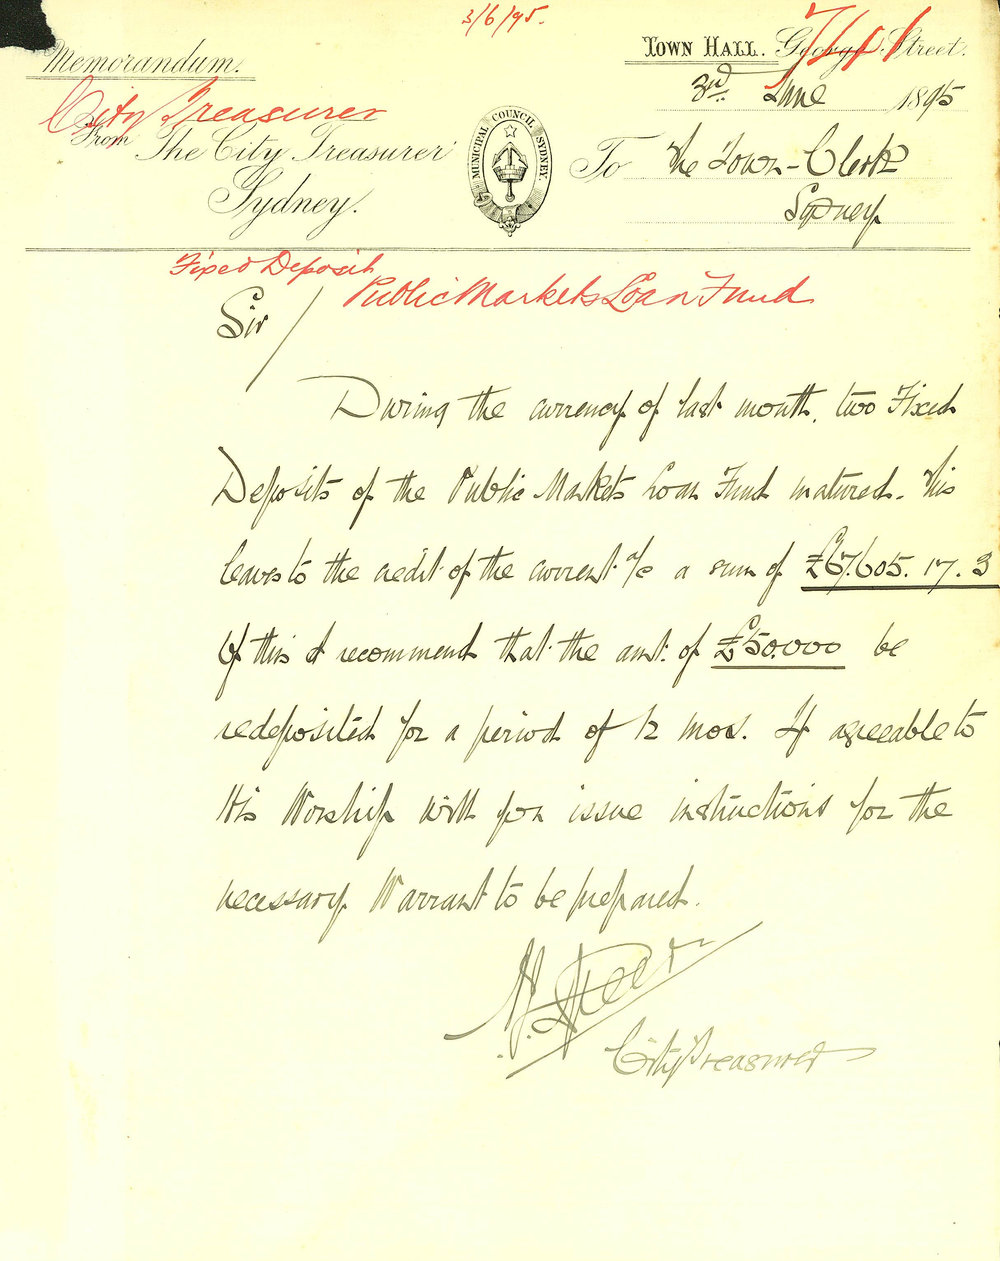 3/6/95.
Memorandum.
TOWN HALL. George Street.
3rd June 1895
City Treasurer
From The City Treasurer
Sydney.
MUNICIPAL COUNCIL SYDNEY.
To The Town-Clerk
Sydney
Fixed Deposit
Public Markets Loan Fund
Sir/
During the currency of last month, two Fixed
Deposits of the Public Markets Loan Fund matured. This
leaves to the credit of the current a/c a sum of £67,605.17.3
Of this I recommend that the amt. of £50.000 be
redeposited for a period of 12 mos. If agreeable to
His Worship will you issue instructions for the
necessary Warrant to be prepared.
City Treasurer